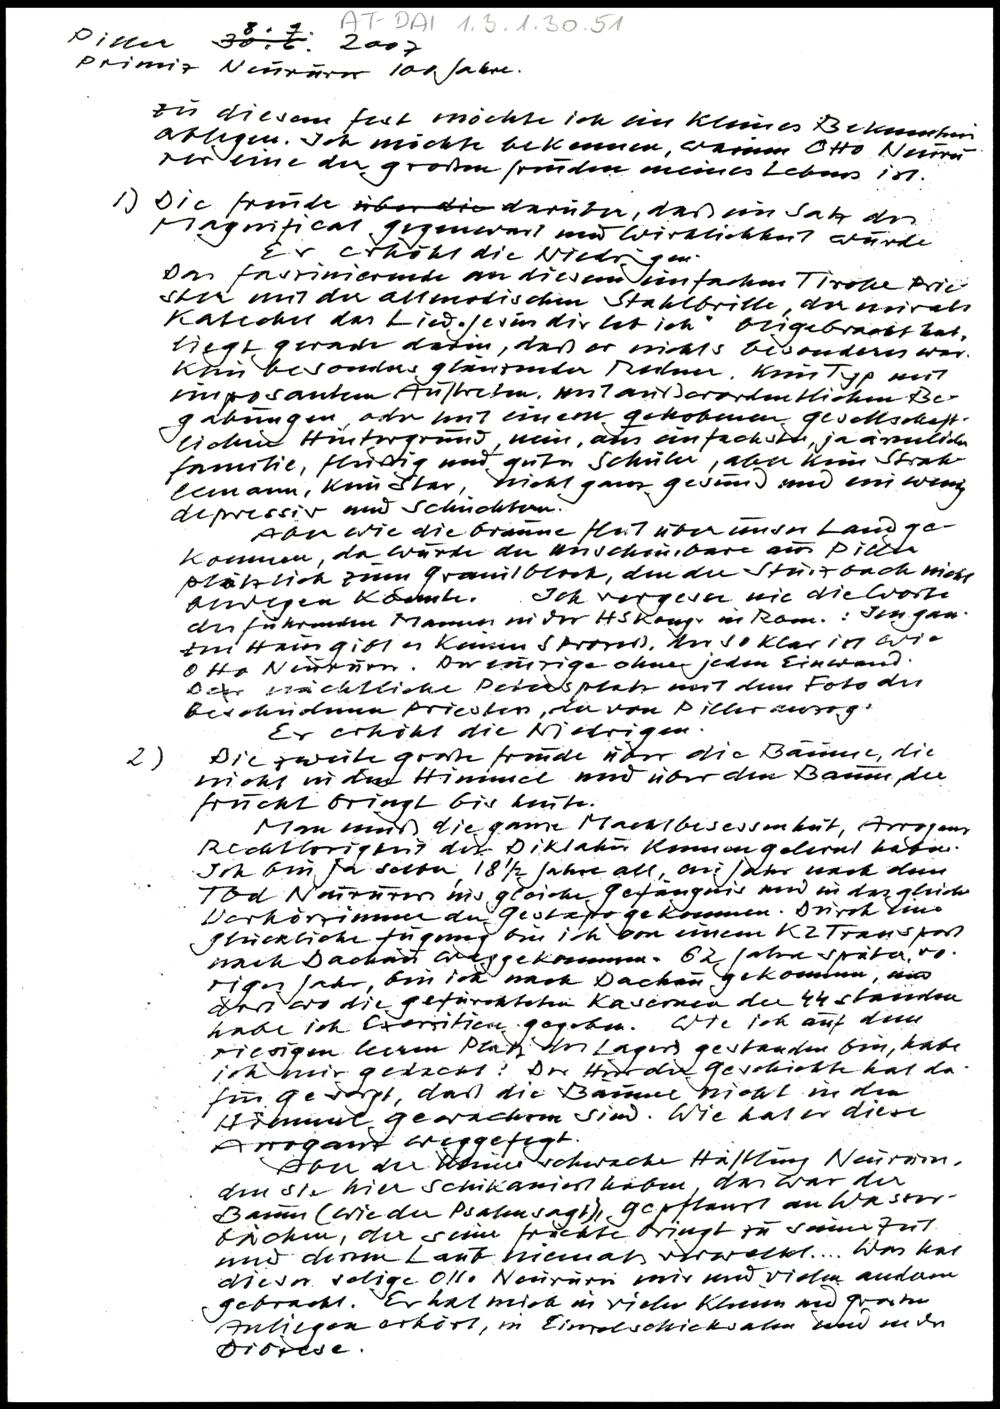 AT-DAI 1.3.1.30.51
Piller 30.6. 8.7. 2007
Primiz Neururer 100 Jahre.
zu diesem Fest möchte ich ein kleines Bekenntnis
ablegen. Ich möchte bekennen, warum Otto Neuru
rer eine der großen Freuden meines Lebens ist.
1) Die Freude über die darüber, daß ein Satz des
Magnificat gegenwart und Wirklichkeit wurde
Er erhöht die Niedrigen.
Das faszinierende an diesem einfachen Tiroler Prie
ster mit der altmodischen Stahlbrille, der mir als
Katechet das Lied "Jesus dir leb ich" beigebracht hat,
liegt gerade darin, daß er nichts besonderes war.
Kein besonders glänzender Redner. Kein Typ mit
imposantem Auftreten, mit außerordentlichen Be-
gabungen oder mit einem gehobenen gesellschaft-
lichen Hintergrund, nein, aus einfachster, ja ärmlicher
Familie, fleißig und guter Schüler, aber kein Strah
lemann, kein Star, nicht ganz gesund und ein wenig
depressiv und schüchtern.
Aber wie die braune Flut über unser Land ge-
kommen, da wurde der unscheinbare aus Piller
plötzlich zum Granitblock, den der Sturzbach nicht
bewegen konnte. Ich vergesse nie die Worte
des führenden Mannes in der HS Kongr in Rom. : Im gan-
zen Haus gibt es keinen Prozeß, der so klar ist wie
Otto Neururer. Der einzige ohne jeden Einwand.
Der nächtliche Petersplatz mit dem Foto des
bescheidenen Priesters, der von Piller auszog.
Er erhöht die Niedrigen.
2) Die zweite große Freude über die Bäume, die
nicht in den Himmel und über den Baum, der
Frucht bringt bis heute.
Man muß die ganze Machtbesessenheit, Arroganz
Rechtlosigkeit der Diktatur kennengelernt haben.
Ich bin ja selber, 18 1/2 Jahre alt, ein Jahr nach dem
Tod Neururers ins gleiche Gefängnis und in das gleiche
Verhörzimmer der Gestapo gekommen. Durch eine
glückliche Fügung bin ich von einem KZ Transport
nach Dachau weggekommen. 62 Jahre später, vo-
riges Jahr, bin ich nach Dachau gekommen, und
dort wo die gefürchteten Kasernen der SS standen
habe ich Exerzitien gegeben. Wie ich auf dem
riesigen leeren Platz des Lagers gestanden bin, habe
ich mir gedacht: Der Herr der Geschichte hat da-
für gesorgt, daß die Bäume nicht in den
Himmel gewachsen sind. Wie hat er diese
Arroganz weggefegt.
Aber der kleine schwache Häftling Neururer,
den sie hier schikaniert haben, das war der
Baum (wie der Psalm sagt), gepflanzt an Wasser-
bächen, der seine Früchte bringt zu seiner Zeit
und dessen Laub niemals verwelkt... Was hat
dieser selige Otto Neururer mir und vielen anderen
gebracht. Er hat mich in vielen kleinen und großen
Anliegen erhört, in Einzelschicksalen und in der
Diözese.